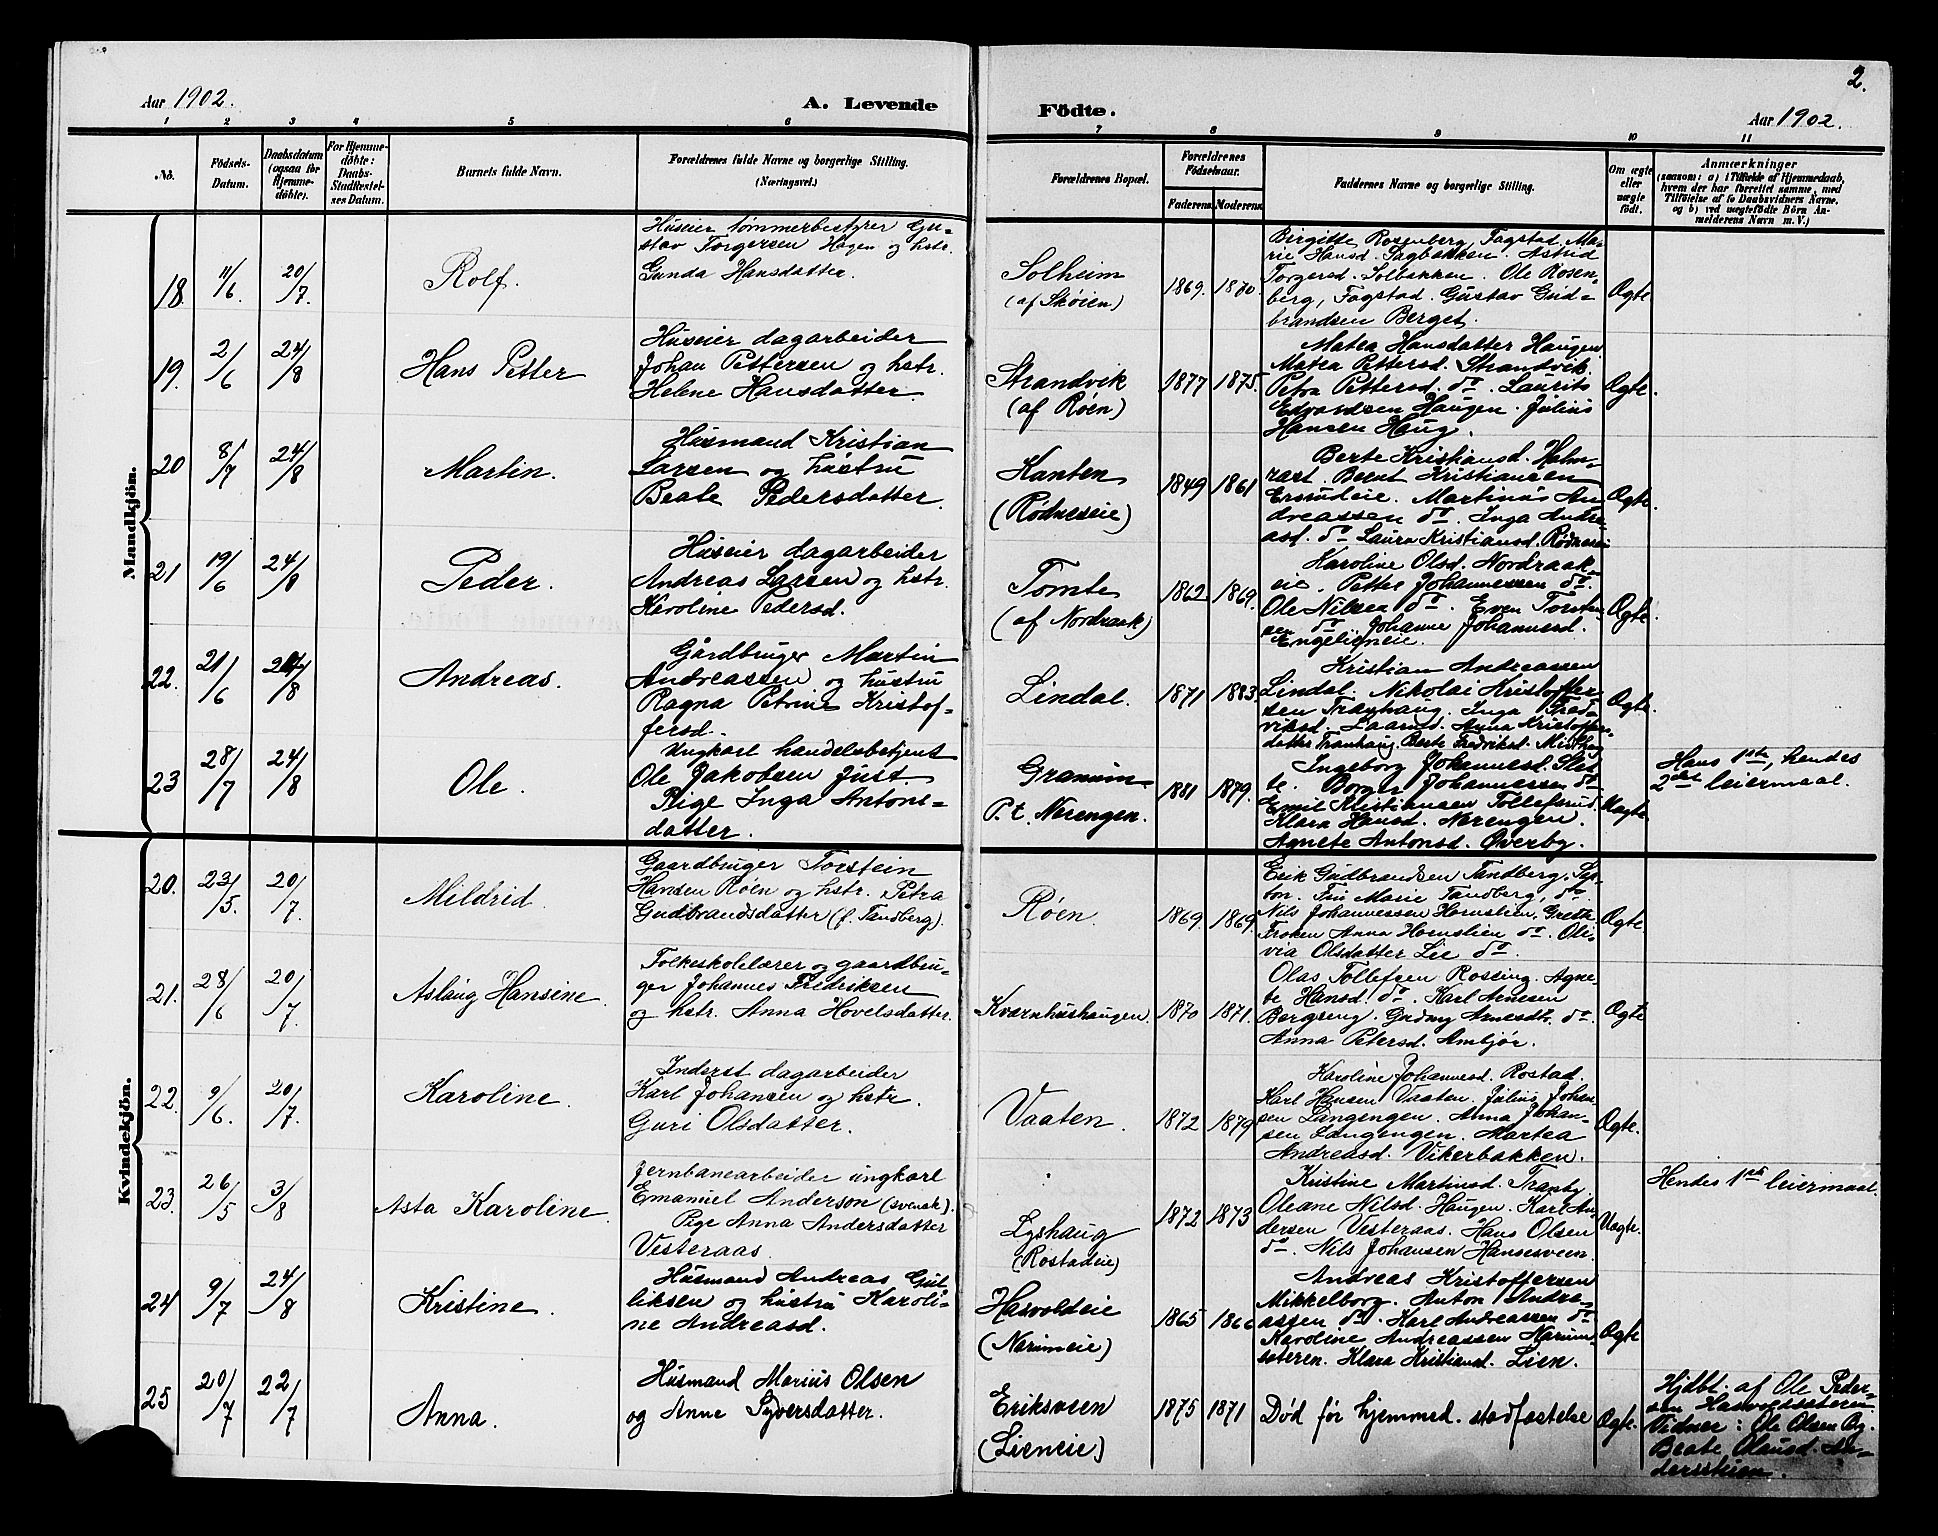 2.
Aar 1902.
A. Levende
Födte.
Aar 1902.
1 2 3 4 5 6 7 8 9 10 11
No.
Födsels-
Datum.
Daabsdatum
(ogsaa for
Hjemme-
döbte).
For Hjemme-
döbte:
Daabs-
Stadfæstel-
ses Datum.
Barnets fulde Navn.
Forældrenes fulde Navne og borgerlige Stilling.
(Næringsvei.)
Forældrenes Bopæl.
Forældrenes
Födselsaar.
Faderens Moderens
Faddernes Navne og borgerlige Stilling.
Om ægte
eller
uægte
födt.
Anmærkninger
(saasom: a) i Tilfælde af Hjemmedaab,
hvem der har forrettet samme, med
Tilföielse af to Daabsvidners Navne,
og b) ved uægtefödte Börn An-
melderens Navn m. V.)
Mandkjön.
18. 11/6. 20/7. Rolf.
Huseier tømmerbestyrer Gu-
stav Torgersen Hagen og hstr.
Gunda Hansdatter.
Solheim
(af Skøien)
1869. 1870.
Birgitte Rosenberg, Fagstad. Ma-
rie Hansd. Fagbakken. Astrid
Torgersd. Solbakken. Ole Rosen-
berg, Fagstad. Gustav Gud-
brandsen Berget.
Ægte
19. 2/6 24/8 Hans Petter
Huseier dagarbeider
Johan Pettersen og hstr.
Helene Hansdatter.
Strandvik
(af Røen)
1877 1875.
Matea Hansdatter Haugen
Matea Pettersd. Strandvik.
Petra Pettersd. do. Laurits
Edvardsen Haugen. Julius
Hansen Haug.
Ægte.
20 8/7 24/8 Martin.
Husmand Kristian
Larsen og hustru
Beate Pedersdatter.
Kanten
(Rødneseie)
1849 1861
Berte Kristiansd. Holm-
rast. Bernt Kristiansen
Ersrudeie. Martinus An-
dreassen do. Inga Andre-
asd. do Laura Kristiansd. Rødneseie
Ægte.
21 19/6 24/8 Peder.
Huseier dagarbeider
Andreas Larsen og hstr.
Karoline Pedersd.
Tomte
(af Nordraak)
1862 1869.
Karoline Olsd. Nordraak-
eie. Petter Johannessen do.
Ole Nilsen do. Even Torsten-
sen do. Johanne Johannesd.
Engelieneie.
Ægte.
22. 21/6 24/8 Andreas.
Gårdbruger Martin
Andreassen og hustru
Ragna Petrine Kristof-
fersd.
Lindal.
1871 1883.
Kristian Andreassen
Lindal. Nikolai Kristoffer-
sen Tranhaug. Inga Fred-
riksd. Anna Kristoffers-
datter Tranhaug. Berte Fredriksd.
Ægte.
23 28/7 24/8 Ole.
Ungkarl handelsbetjent
Ole Jakobsen Just.
Pige Inga Antons-
datter.
Granum
P. t. Nerengen.
1881 1879.
Ingeborg Johannesd. Slet-
te. Borger Johannessen do
Emil Kristiansen Tollefsrud.
Klara Hansd. Nerengen.
Agnete Antonsd. Øverby.
Uægte.
Hans 1ste, hendes
2det leiermaal.
Kvindekjön.
20. 23/5. 20/7. Mildrid.
Gaardbruger Torstein
Hansen Røen og hstr. Petra
Gudbrandsdatter (f. Tandberg).
Røen.
1869. 1869.
Erik Gudbrandsen Tandberg.
Marie Tandberg, do.
Nils Johannessen Hornslien,
Frøken Anna Hornslien do. Oli-
via Olsdatter Lie do.
Ægte.
21. 28/6 20/7. Aslaug Hansine.
Folkeskolelærer og gaardbru-
ger Johannes Frediksen
og hstr. Anna Hovelsdatter.
Kvarnhushaugen.
1870 1871.
Olas Tollefsen Rossing. Agne-
te Hansd. do. Karl Arnesen
Bergseng. Gudny Arnesdtr. do.
Anna Petersd. Ambjør.
Ægte
22. 9/6. 20/7. Karoline.
Inderst dagarbeider
Karl Johansen og hstr.
Guri Olsdatter.
Vaaten.
1872 1879
Karoline Johannesd. Rostad.
Karl Hansen Vaaten. Julius Johan-
sen Langengen. Anna Johan-
sen Langengen. Martea
Andreasd. Vikerbakken.
Ægte.
23. 26/5 3/8 Asta Karoline.
Jernbanearbeider ungkarl
Emanuel Anderson (svensk).
Pige Anna Andersdatter
Vesteraas.
Lyshaug
(Rostadeie)
1872 1873
Kristine Martinsd. Tranby.
Oleane Nilsd. Haugen. Karl An-
dersen Vesteraas. Hans Olsen
do. Nils Johansen Hansesveen.
Uægte.
Hendes 1ste leiermaal.
24 9/7 24/8 Kristine.
Husmand Andreas Gul-
liksen og hustru Karoli-
ne Andreasd.
Hasvoldeie
(Narumeie)
1865 1866
Andreas Kristoffersen
Mikkelborg. Anton Andre-
assen do. Karl Andreassen do
Karoline Andreassen Narum-
sæteren. Klara Kristiansd. Lien.
Ægte
25 20/7 22/7 Anna.
Husmand Marius Olsen
og Anne Syversdatter.
Eriksveen
(Lieneie)
1875 1871
Død før hjemmed. stadfæstelse
Ægte.
Hjdbt. af Ole Peder-
sen
Vidner: Ole Olsen By.
Beate Olausd. An-
dersstuen.